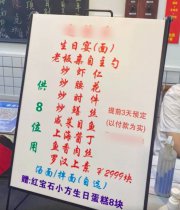 生日宴(面)
老板菜自主勺
炒虾仁
炒腰花
炒时件
炒鳝丝
咸菜目鱼
上海酱丁
鱼香肉丝
罗汉上素
¥2999块
汤面/拌面(自选)
赠:红宝石小方生日蛋糕8块
供8位用
提前3天预定
(以付款为实)